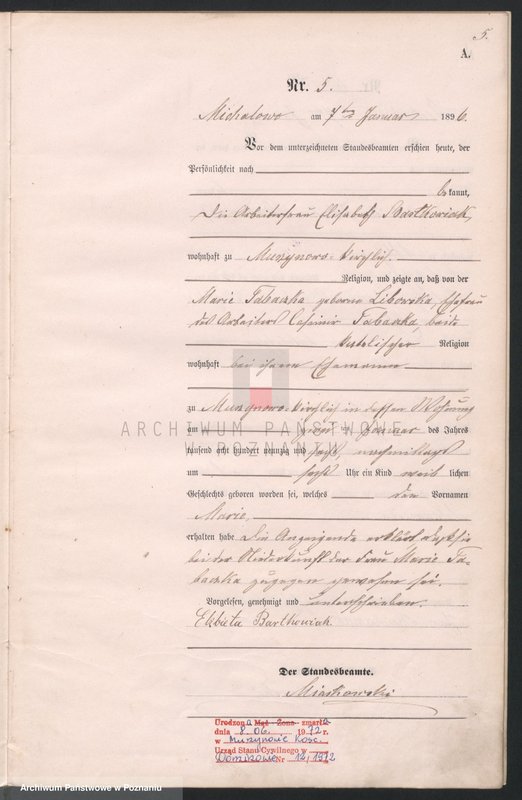 5.
A.
Nr. 5.
Michalowo am 7ten Januar 1896.
Vor dem unterzeichneten Standesbeamten erschien heute, der
Persönlichkeit nach
bekannt,
Die Arbeiterfrau Elisabeth Bartkowiak,
wohnhaft zu Murzynowo kirchlich.
Religion, und zeigte an, daß von der
Marie Tabaczka geborene Libowska, Ehefrau
des Arbeiters Casimir Tabaczka, beide
katolischer Religion
wohnhaft bei ihrem Ehemanne
zu Murzynowo kirchlich in dessen Wohnung
am Januar des Jahres
tausend acht hundert neunzig und sechs, nachmittags
um sechs Uhr ein Kind weiblichen
Geschlechts geboren worden sei, welches den Vornamen
Marie,
erhalten habe. Die Anzeigende erklärt, daß sie
bei der Niederkunft der Frau Marie Ta-
baczka zugegen gewesen sei.
Vorgelesen, genehmigt und unterschrieben.
Elzbieta Bartkowiak.
Der Standesbeamte.
Miaskowski
Urodzona Mąż Żona zmarła
dnia 8. 06. 1972 r.
w Murzynowie Kośc.
Urząd Stanu Cywilnego w
Dominowo Nr 12/1972
ARCHIWUM PAŃSTWOWE
W POZNANIU
Archiwum Państwowe w Poznaniu
Archiwum Państwowe w Poznaniu